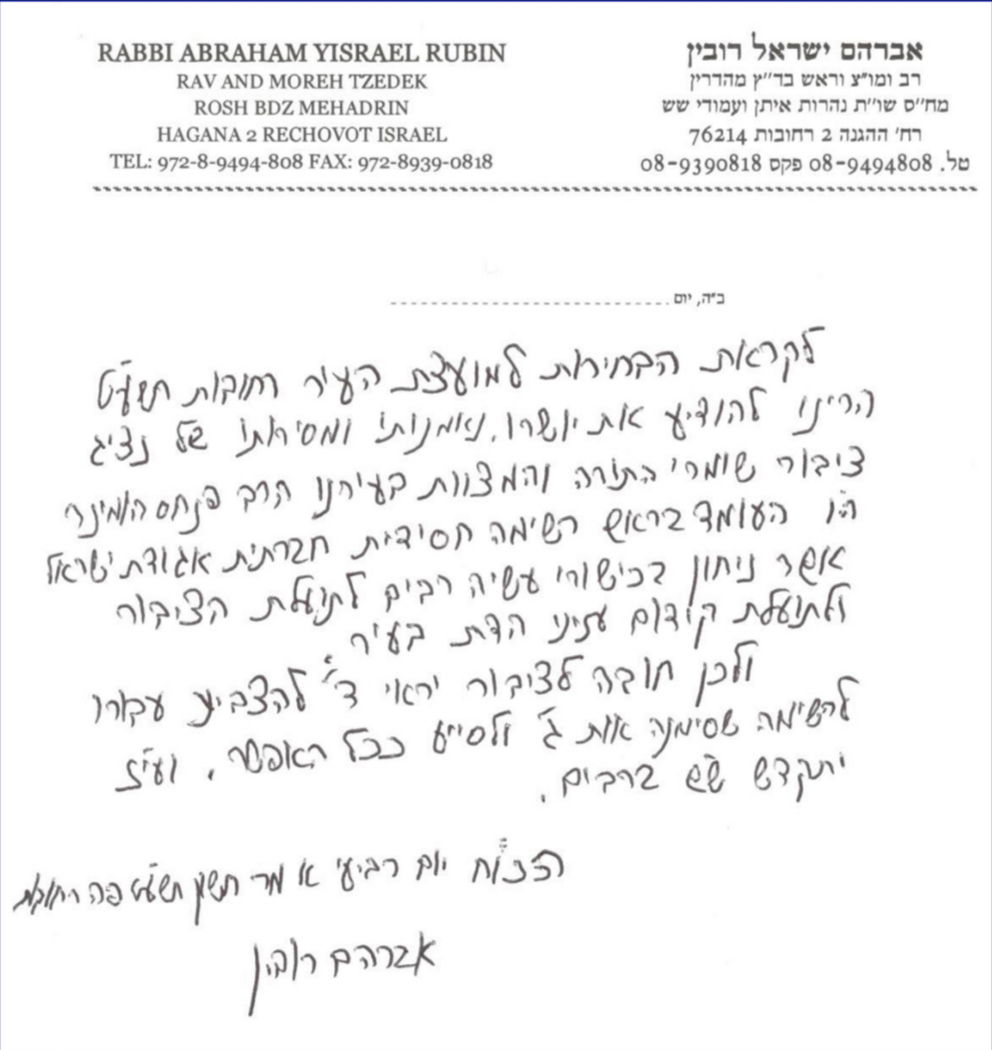 RABBI ABRAHAM YISRAEL RUBIN
RAV AND MOREH TZEDEK
ROSH BDZ MEHADRIN
HAGANA 2 RECHOVOT ISRAEL
TEL: 972-8-9494-808 FAX: 972-8939-0818
אברהם ישראל רובין
רב ומו"צ וראש בד"ץ מהדרין
מח"ס שו"ת נהרות איתן ועמודי שש
רח' ההגנה 2 רחובות 76214
טל. 08-9494808 פקס 08-9390818
ב"ה, יום
לקראת הבחירות למועצת העיר רחובות תשע"ט
הרינו להודיע את יושרו, נאמנותו ומסירותו של נציג
ציבור שומרי התורה והמצוות בעירנו הרב פנחס הומינר
הי"ו העומד בראש רשימה חסידית חברתית אגודת ישראל
אשר ניחון בכישורי עשיה רבים לתועלת הציבור
ולתועלת קידום עניני הדת בעיר
ולכן חובה לציבור יראי ד' להצביע עבורו
לרשימה שסימנה אות ג' ולסייע ככל האפשר, ועי"ז
יתקדש ש"ש ברבים.
הכו"ח יום רביעי א מר חשון תשע"ט פה רחובות
אברהם רובין